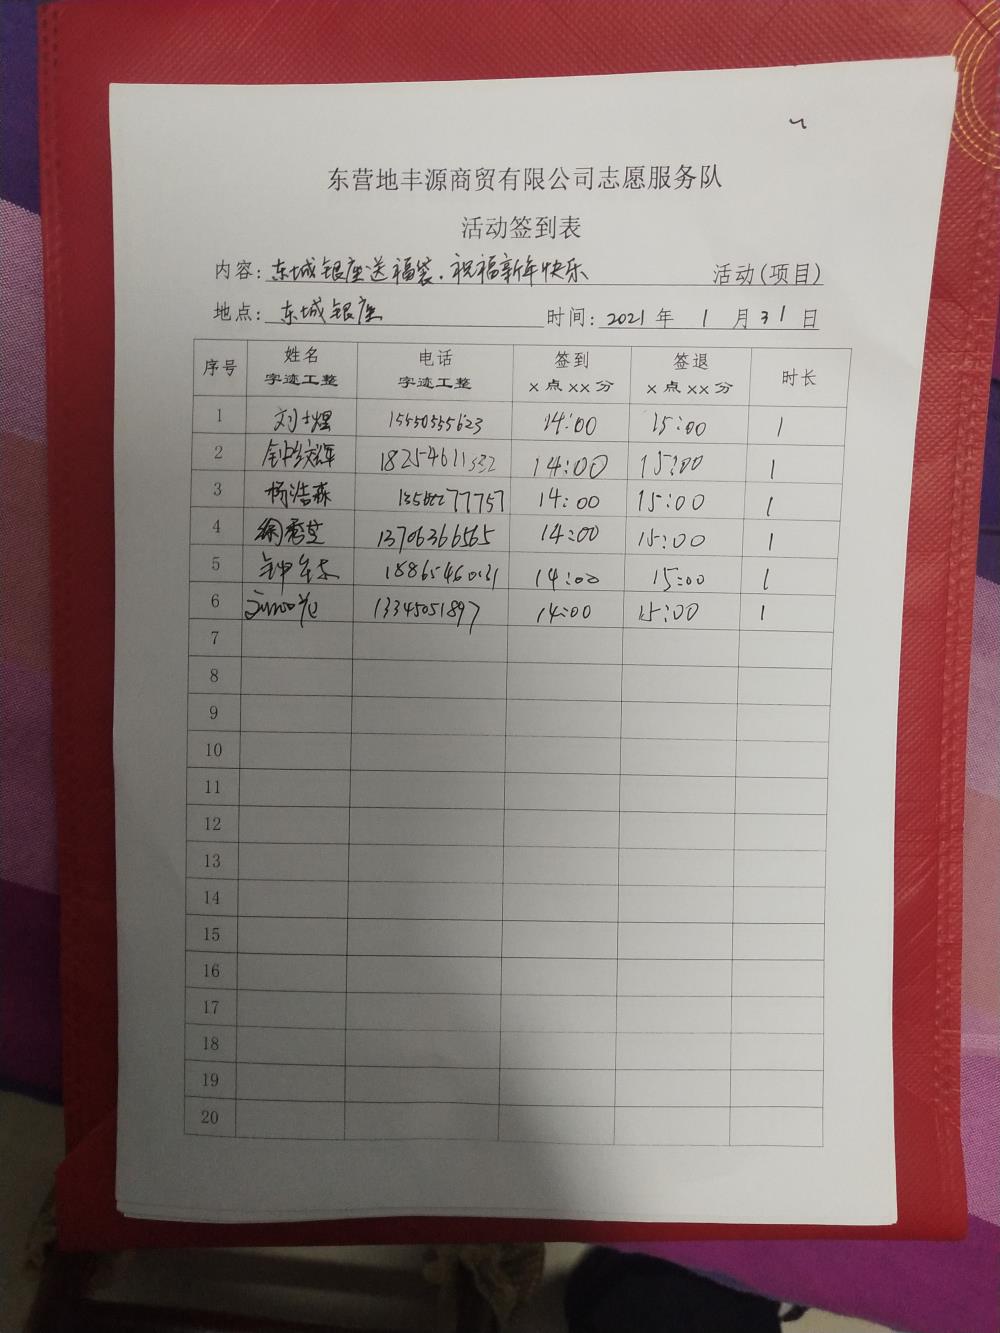 东营地丰源商贸有限公司志愿服务队
活动签到表
内容: 东城银座送福袋.祝福新年快乐 活动(项目)
地点: 东城银座 时间: 2021 年 1 月 31 日
序号 姓名 字迹工整 电话 字迹工整 签到 x 点 xx 分 签退 x 点 xx 分 时长
1 15550555623 14:00 15:00 1
2 18254611332 14:00 15:00 1
3 杨浩森 14:00 15:00 1
4 13706366565 14:00 15:00 1
5 18865460131 14:00 15:00 1
6 13345051897 14:00 15:00 1
7
8
9
10
11
12
13
14
15
16
17
18
19
20